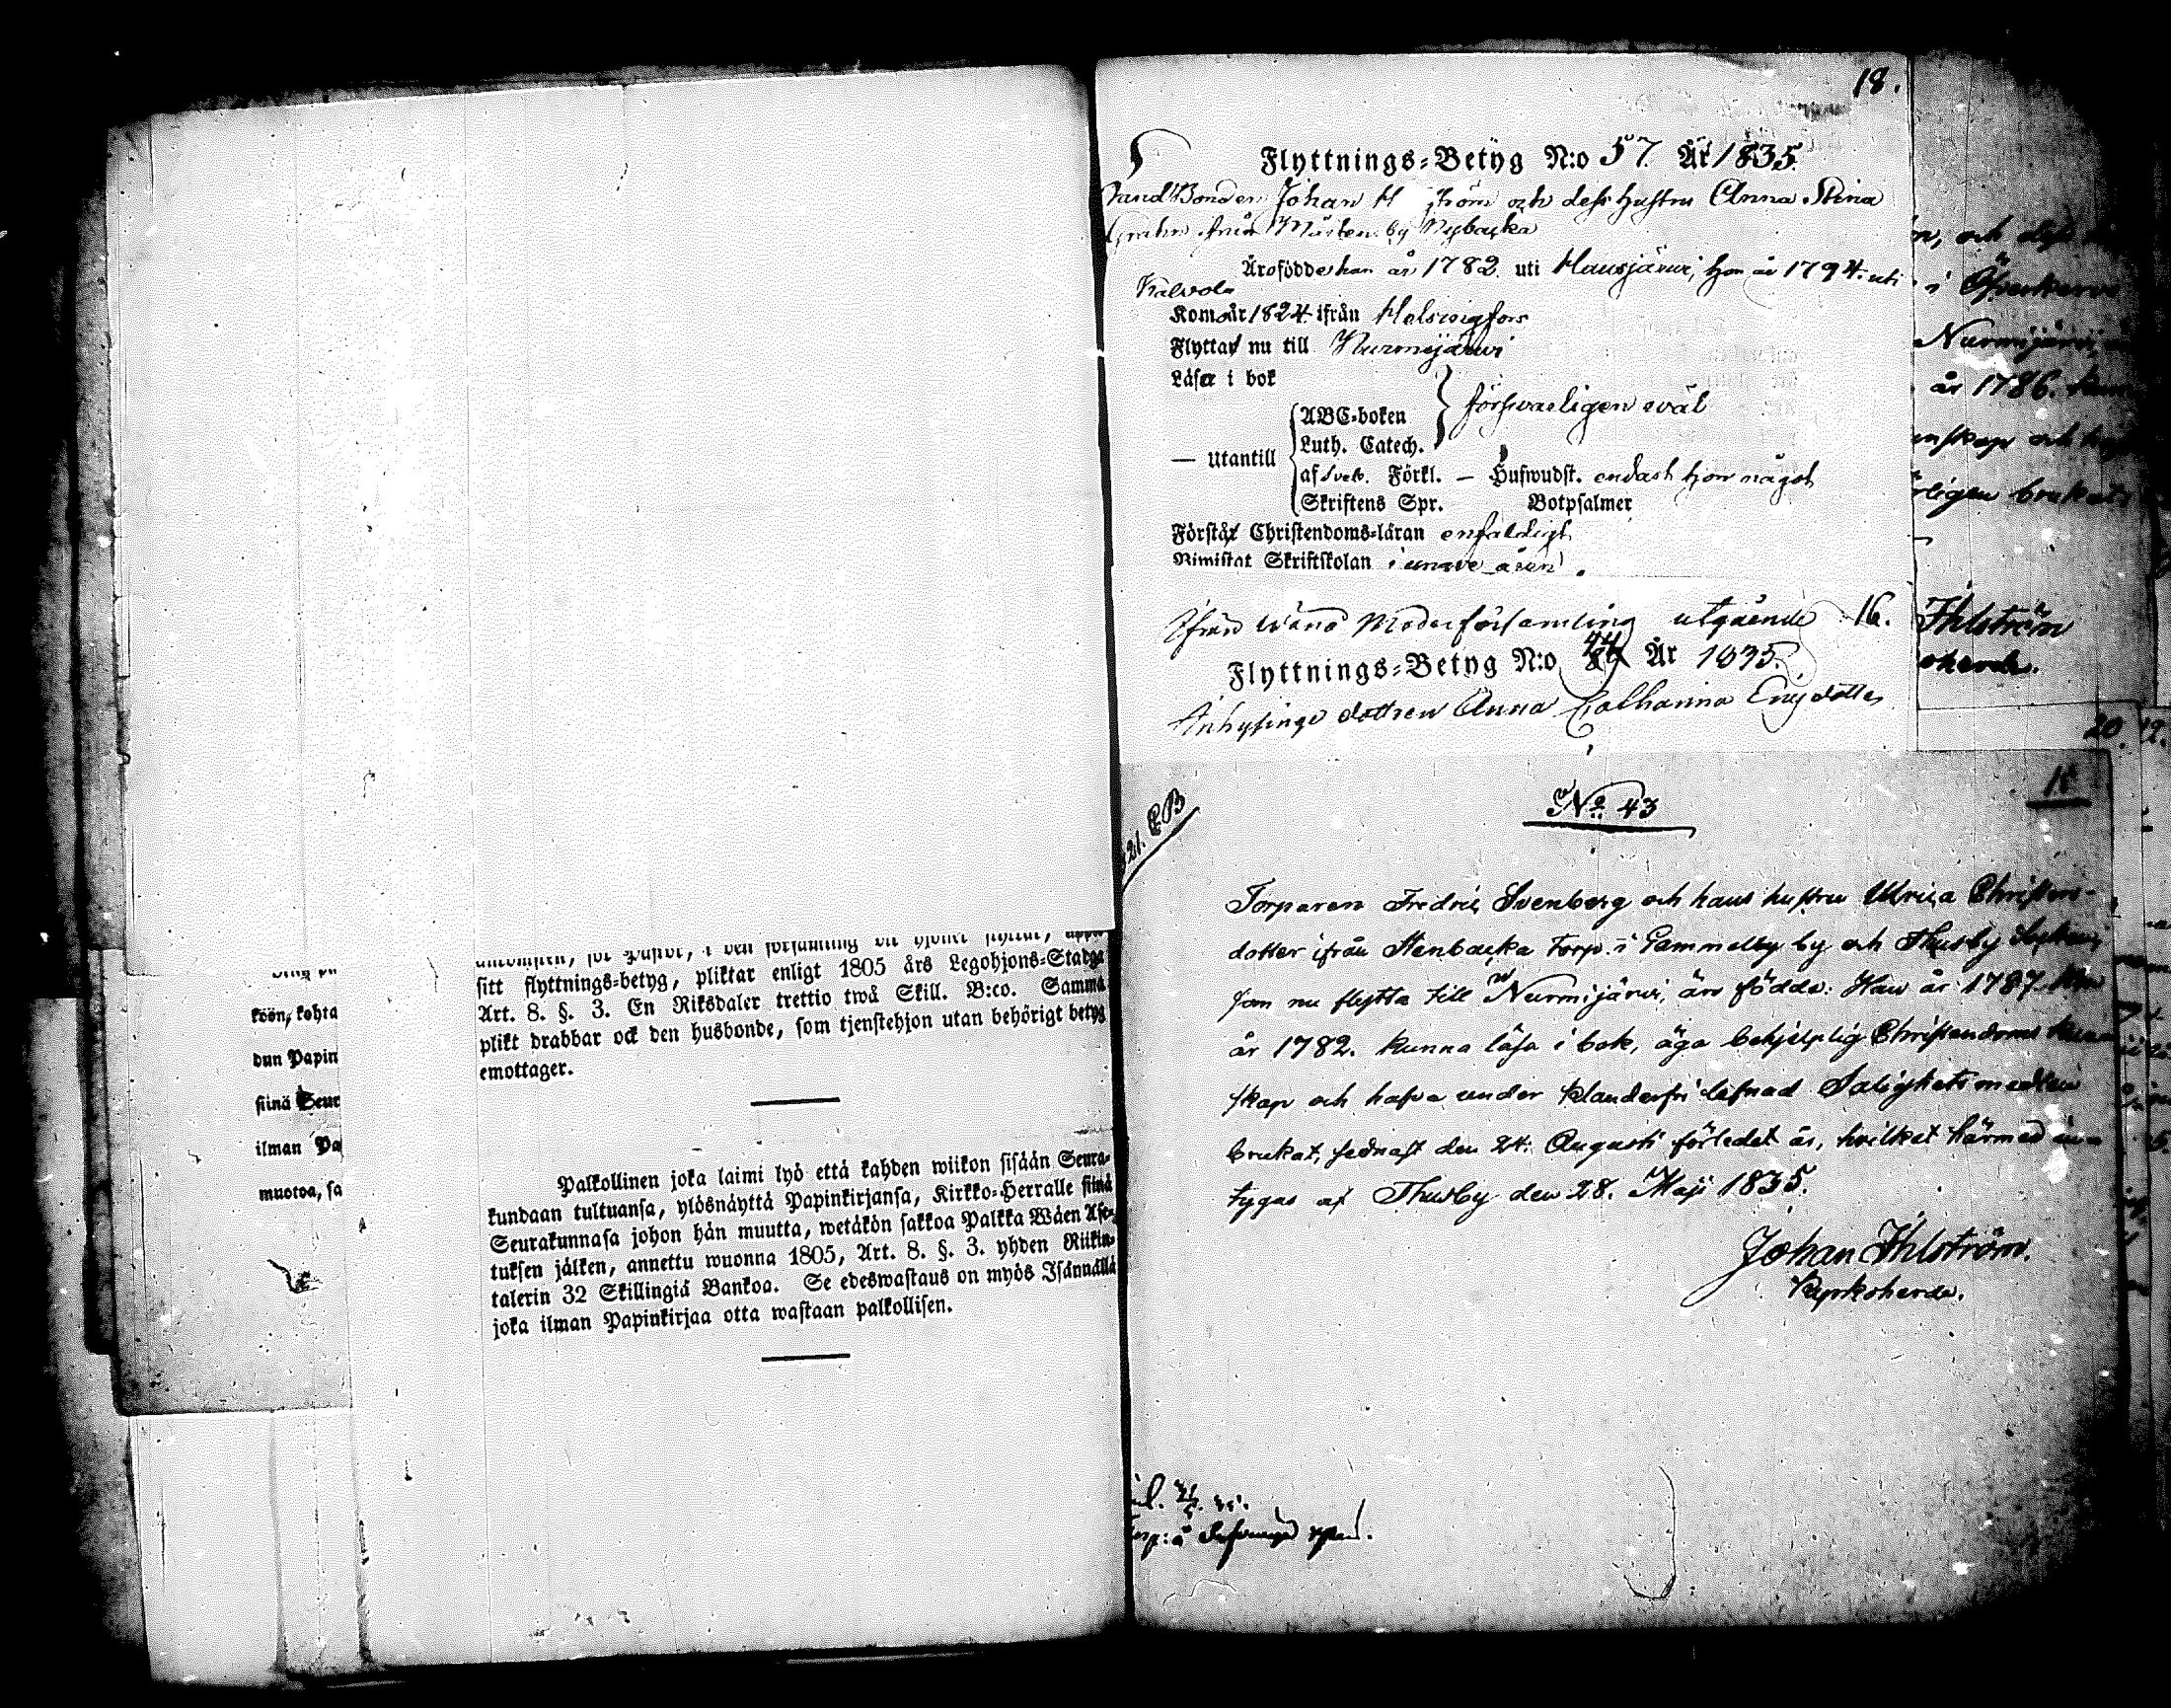 sitt flyttnings-betyg, pliktar enligt 1805 års Legohjons-Stadga
Art. 8. §. 3. En Riksdaler trettio twå Skill. B:co. Samma
plikt drabbar ock den husbonde, som tjenstehjon utan behörigt betyg
emottager.
köön, kohta
dun Papin
siinä Seur
ilman Pa
muotoa, sa
Palkollinen joka laimi lyö että kahden wiikon sisään Seura-
kundaan tultuansa, ylösnäyttä Papinkirjansa, Kirkko-Herralle siinä
Seurakunnasa johon hän muutta, wetäkön sakkoa Palkka Wäen Ase-
tuksen jälken, annettu wuonna 1805, Art. 8. §. 3. yhden Riikin-
talerin 32 Skillingiä Bankoa. Se edeswastaus on myös Isännällä
joka ilman Papinkirjaa otta wastaan palkollisen.
18.
Flyttnings-Betyg N:o 57. År 1835.
LandBonden Johan H ström och dess hustru Anna Stina
Grahn från Mårtensby Nybacka
Äro födde han år 1782. uti Hausjärwi, hon år 1794. uti
Kalvola
Kom år 1824. ifrån Helsingfors
Flytta nu till Nurmijärwi
Läsa i bok
ABC-boken
försvarligen wäl
Luth. Catech.
— Utantill
af Sveb. Förkl. — Hufwudst. endast hon något
Skriftens Spr. Botpsalmer
Förstå Christendoms-läran enfaldigt
Bimistat Skriftskolan i unare åren.
Ifrån Wånå Moderförsamling utgående 16.
Flyttnings-Betyg N:o 44 År 1835.
Inhysinge dottren Anna Catharina Ericsdotter
n, och dess
Nurmijärwi,
år 1786. kun
nskap och
ligen brukat
Ihlström
oherde.
20.
18
No 43
Torparen Fredric Svenberg och hans hustru Ulrica Christers-
dotter ifrån Stenbacka torp i Gammelby by och Thusby Sokn,
som nu flytta till Nurmijärwi, äro födde: Han år 1787. Hon
år 1782. kunna läsa i bok, äga behjelplig Christendoms kunn
skap och hafva under klanderfri lefnad Salighetsmedlen
brukat, sednast den 24. Augusti förledet år, hvilket härmed in-
tygas af Thusby den 28. Maji 1835.
Johan Ihlström.
Kyrkoherde.